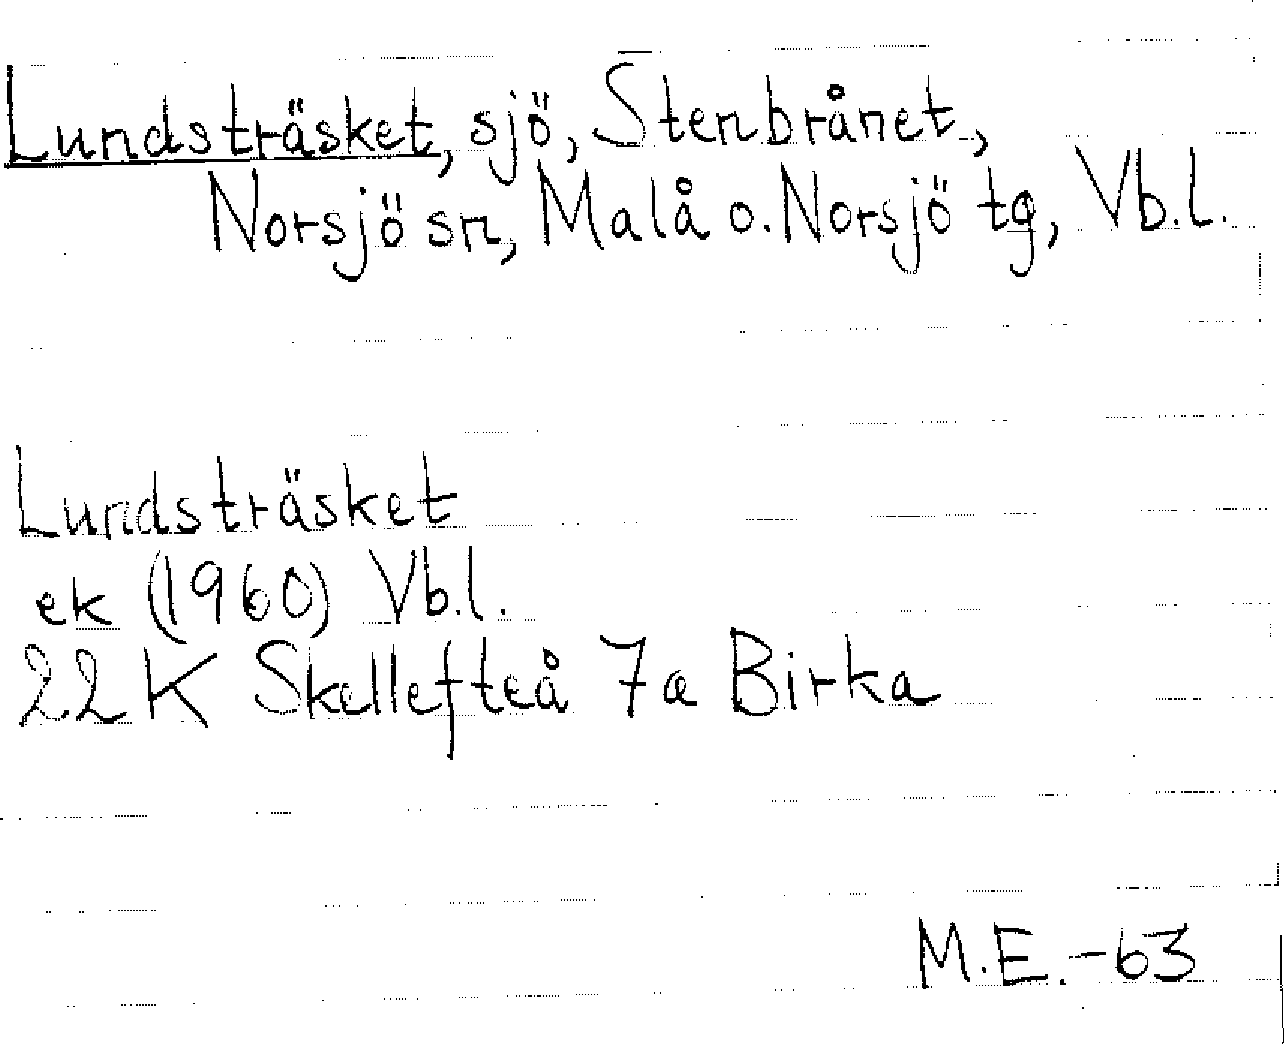 Lundsträsket, sjö, Stenbrånet,
Norsjö sn, Malå o. Norsjö tg, Vb.l.
Lundsträsket
ek (1960) Vb.l.
22K Skellefteå 7a Birka
M.E.-63